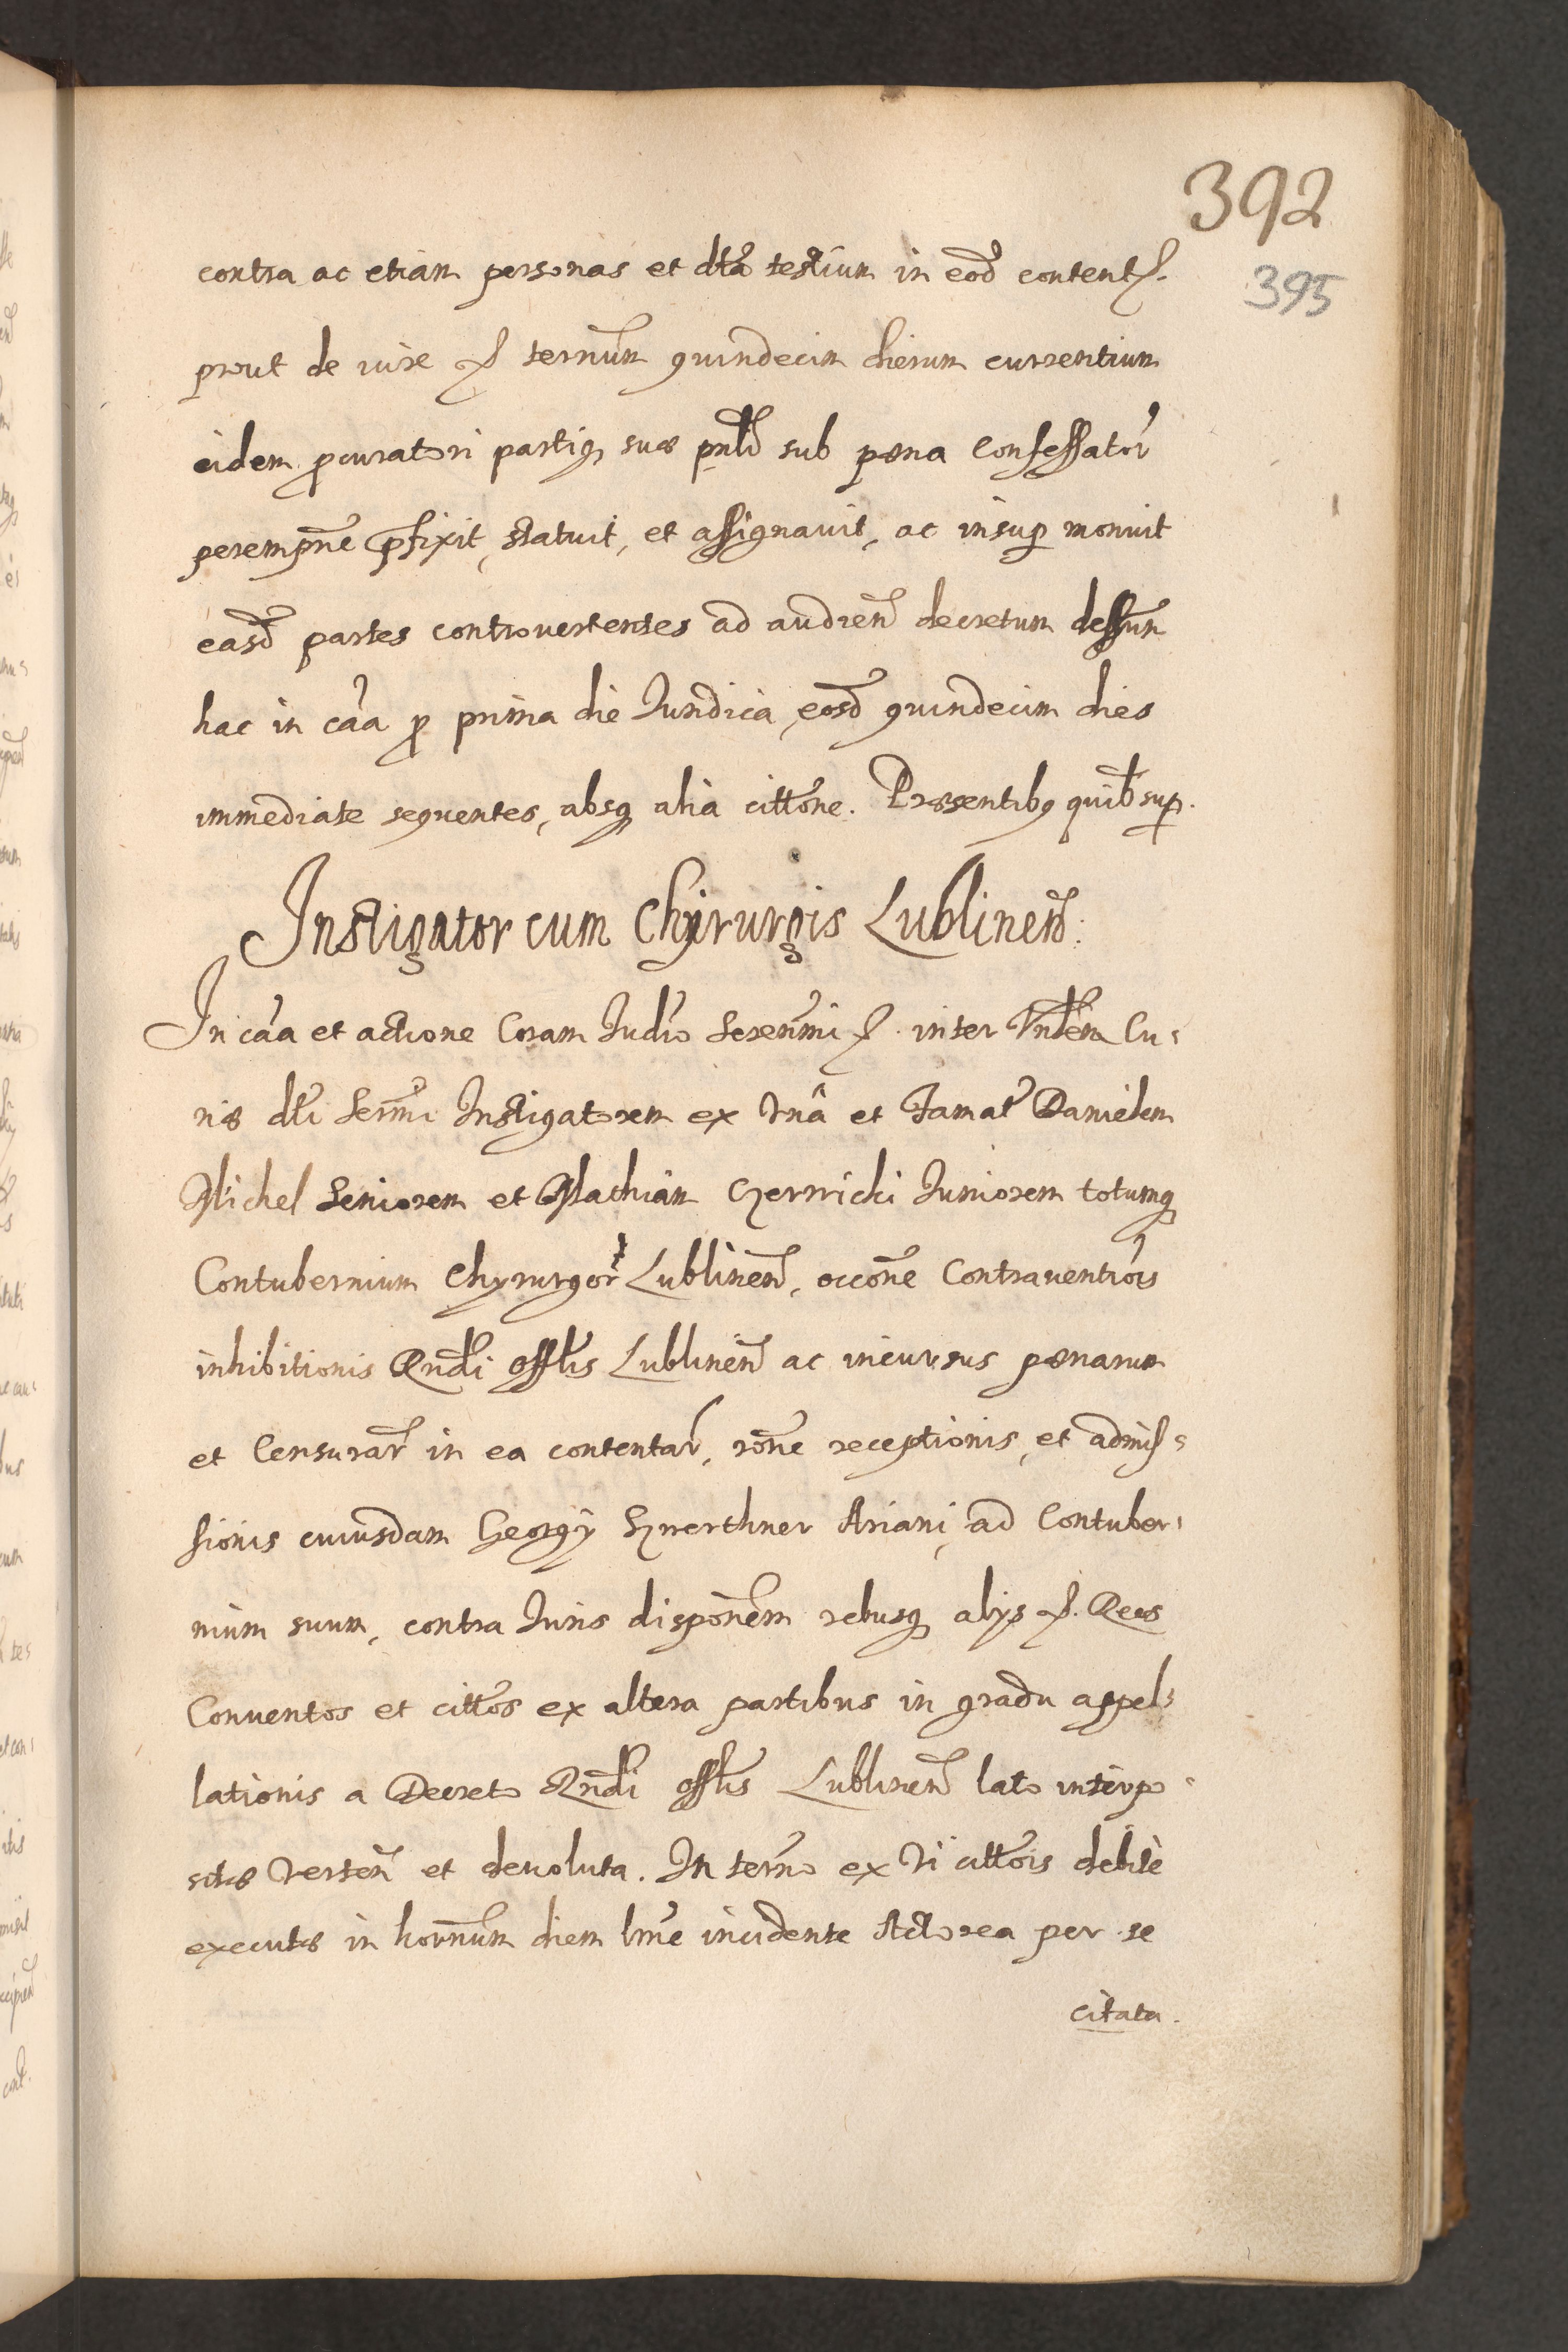 392
395
contra ac etiam personas et dta testium in eod content
prout de iure ternum quindecim dierum currentium
eidem pcuratori partiq suæ pntid sub pæna Confessator
perempne pfixit, statuit, et assignauit, ac insup monuit
easd partes controvertentes ad audien decretum deffum
hac in caa p prima die Iuridica, eosd quindecim dies
immediate sequentes, absq alia cittone. Præsentibq quib sup.
Instigator cum Chyrurgis Lublinen:
In caa et actione Coram Iudio Serenmi inter Vnblem Cu-
riæ dti Sermi Instigatorem ex Vna et Famat Danielem
Michel Seniorem et Mathiam Czernicki Iuniorem totumq
Contubernium Chyrurgor Lublinen, occone Contrauentiois
inhibitionis Rndi offlis Lublinen ac incursus pænarum
et Censurar in ea contentar, rone receptionis, et admis-
sionis cuiusdam Georgij Szwerthner Ariani, ad Contuber-
nium suum, contra Iuris disponem rebusq alijs Reos
Conuentos et cittos ex altera partibus in gradu appel-
lationis a Decreto Rndi offlis Lublinen lato interpo-
sitæ Verten et deuoluta. In termo ex Vi cittois debite
executæ in hornum diem lime incidente Actorea per se
citata.